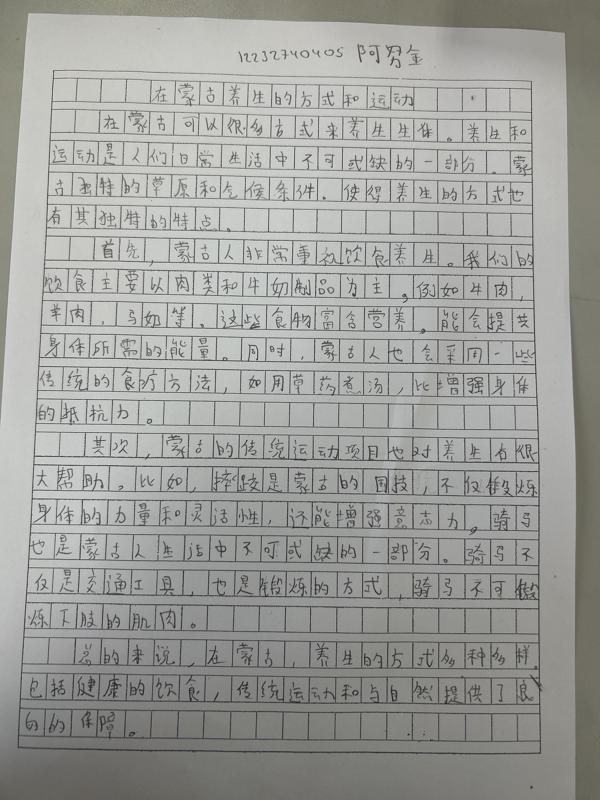 12232740405 阿努金
在蒙古养生的方式和运动
在蒙古可以很多古式来养生生体。养生和
运动是人们日常生活中不可或缺的一部分。蒙
古独特的草原和气候条件。使得养生的方式也
有其独特的特点。
首先，蒙古人非常重视饮食养生。我们的
饮食主要以肉类和牛奶制品为主，例如牛肉，
羊肉，马奶等。这些食物富含营养。能会提共
身体所需的能量。同时，蒙古人也会采用一些
传统的食疗方法，如用草药煮汤，比增强身体
的抵抗力。
其次，蒙古的传统运动项目也对养生有很
大帮助。比如，摔跤是蒙古的国技，不仅锻炼
身体的力量和灵活性，还能增强意志力。骑马
也是蒙古人生活中不可或缺的一部分。骑马不
仅是交通工具，也是锻炼的方式，骑马不可锻
炼下肢的肌肉。
总的来说，在蒙古，养生的方式多种多样。
包括健康的饮食，传统运动和与自然提供了良
的的保障。